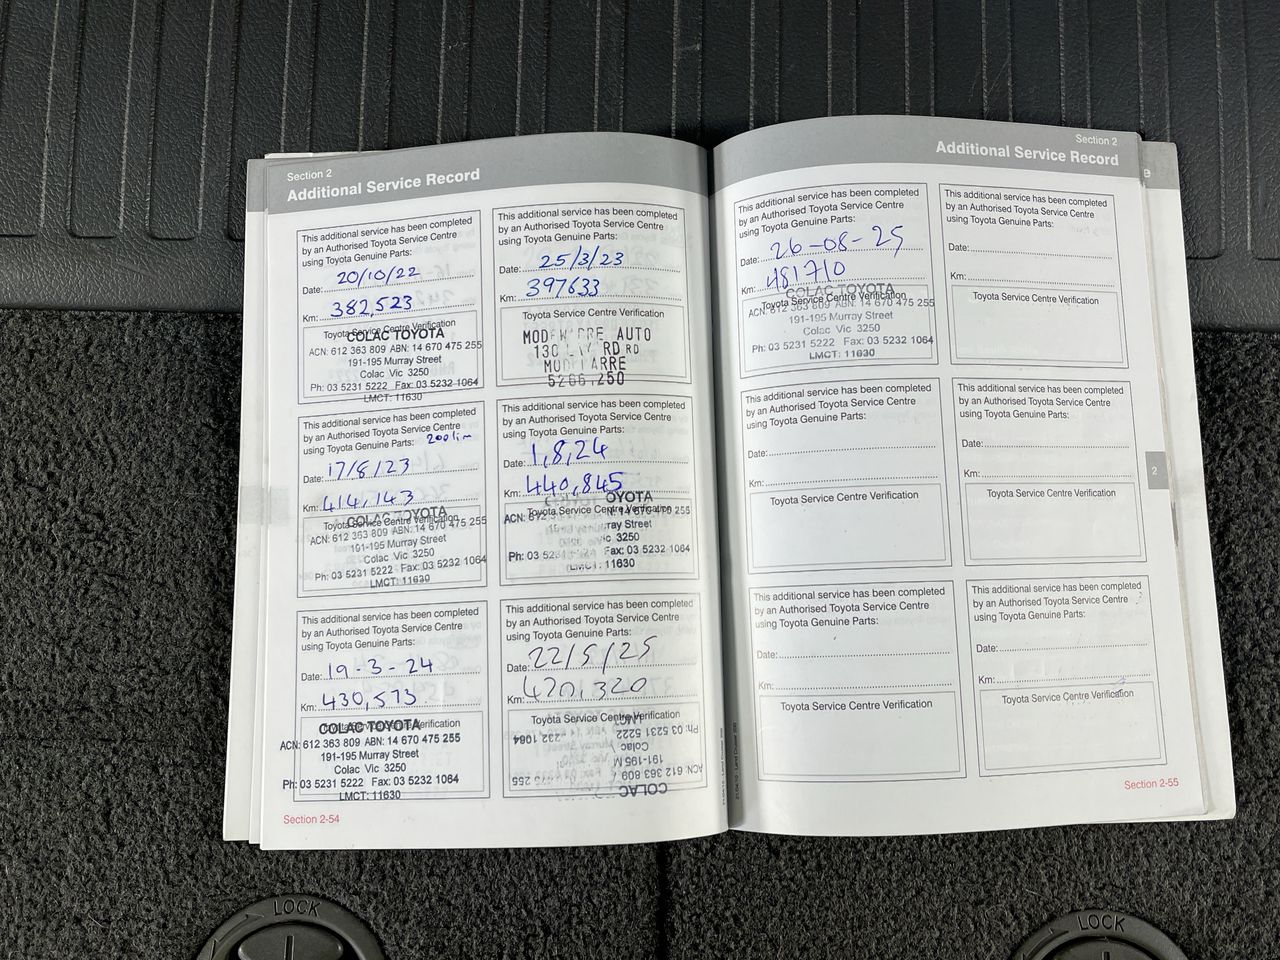 Section 2
Additional Service Record
This additional service has been completed
by an Authorised Toyota Service Centre
using Toyota Genuine Parts:
Date: 20/10/22
Km: 382,523
Toyota Service Centre Verification
COLAC TOYOTA
ACN: 612 363 809 ABN: 14 670 475 255
191-195 Murray Street
Colac Vic 3250
Ph: 03 5231 5222 Fax: 03 5232 1064
LMCT: 11630
This additional service has been completed
by an Authorised Toyota Service Centre
using Toyota Genuine Parts:
Date: 25/3/23
Km: 397633
Toyota Service Centre Verification
AUTO
130 RD RD
This additional service has been completed
by an Authorised Toyota Service Centre
using Toyota Genuine Parts:
Date: 17/8/23
Km: 414,143
COLAC TOYOTA
Toyota Service Centre Verification
ACN: 612 363 809 ABN: 14 670 475 255
191-195 Murray Street
Colac Vic 3250
Ph: 03 5231 5222 Fax: 03 5232 1064
LMCT: 11630
This additional service has been completed
by an Authorised Toyota Service Centre
using Toyota Genuine Parts:
Date: 1,8,24
Km: 440,845
OYOTA
Toyota Service Centre Verification
ACN: 612 N: 14 670 475 255
rray Street
ic 3250
Ph: 03 52 Fax: 03 5232 1064
LMCT: 11630
This additional service has been completed
by an Authorised Toyota Service Centre
using Toyota Genuine Parts:
Date: 19-3-24
Km: 430,573
Toyota Service Centre Verification
COLAC TOYOTA
ACN: 612 363 809 ABN: 14 670 475 255
191-195 Murray Street
Colac Vic 3250
Ph: 03 5231 5222 Fax: 03 5232 1064
LMCT: 11630
This additional service has been completed
by an Authorised Toyota Service Centre
using Toyota Genuine Parts:
Date: 22/5/25
Km: 470,320
Toyota Service Centre Verification
LMCT
Ph: 03 5231 5222 232 1064
Colac
191-195 M
ACN: 612 363 809 255
COLAC
Section 2-54
Section 2
Additional Service Record
This additional service has been completed
by an Authorised Toyota Service Centre
using Toyota Genuine Parts:
Date: 26-08-25
Km: 481710
COLAC TOYOTA
Toyota Service Centre Verification
ACN: 612 363 809 ABN: 14 670 475 255
191-195 Murray Street
Colac Vic 3250
Ph: 03 5231 5222 Fax: 03 5232 1064
LMCT: 11630
This additional service has been completed
by an Authorised Toyota Service Centre
using Toyota Genuine Parts:
Date:
Km:
Toyota Service Centre Verification
This additional service has been completed
by an Authorised Toyota Service Centre
using Toyota Genuine Parts:
Date:
Km:
Toyota Service Centre Verification
This additional service has been completed
by an Authorised Toyota Service Centre
using Toyota Genuine Parts:
Date:
Km:
Toyota Service Centre Verification
This additional service has been completed
by an Authorised Toyota Service Centre
using Toyota Genuine Parts:
Date:
Km:
Toyota Service Centre Verification
This additional service has been completed
by an Authorised Toyota Service Centre
using Toyota Genuine Parts:
Date:
Km:
Toyota Service Centre Verification
2
Section 2-55
LOCK
LOCK